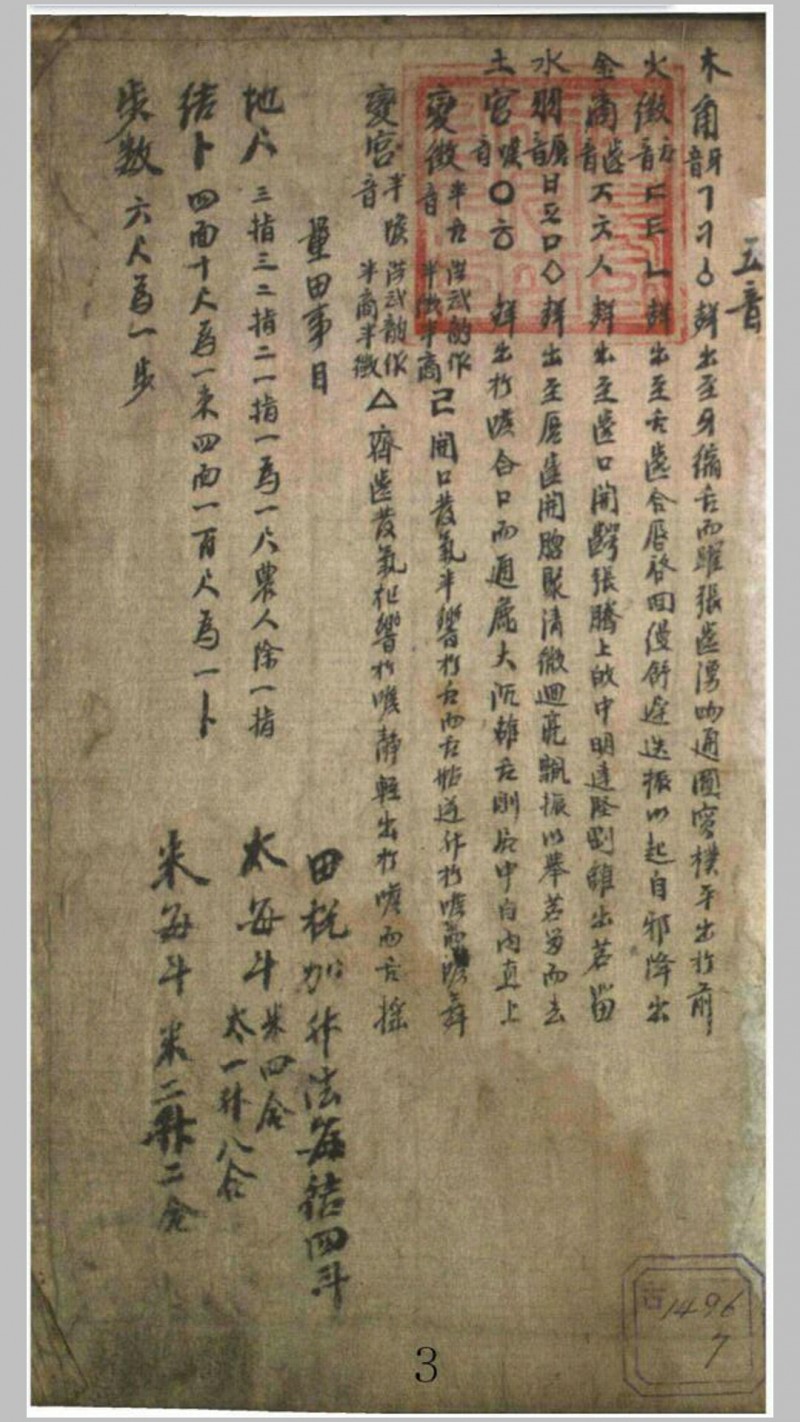 五音
木角牙音ㄱㅋㆁ 辝出至牙縮舌而躍張齒湧吻通圓實樸平出於前
火徵舌音ㄷㅌㄴ 辝出至舌齒合唇啓回慢舒遲迭振以起自邪降出
金商齒音ㅈㅊㅅ 辝出至齒口開齶張騰上的中明達堅剛雖出若留
水羽唇音ㅂㅍㅁ◇ 辝出至唇齒開聚清微迴亮飄振以擧若留而去
土宮喉音ㅇㆆ 辝出於喉合口而通厖大沉雄舌則居中自內直上
變徵半舌音 洪武韵作半徵半商 ㄹ 開口發氣半響於舌而舌
變宮半喉音 洪武韵作半商半徵 △ 齊齒發氣 響於喉 輕出於喉而舌搖
量田事目
地尺 三指三二指二一指一為一尺農人除一指
結卜 四面十尺為一束四面一百尺為一卜
步数 六尺為一步
田税加升法每結四斗
太每斗 米四合 太一升八合
米每斗米二升二合
古1496
7
3